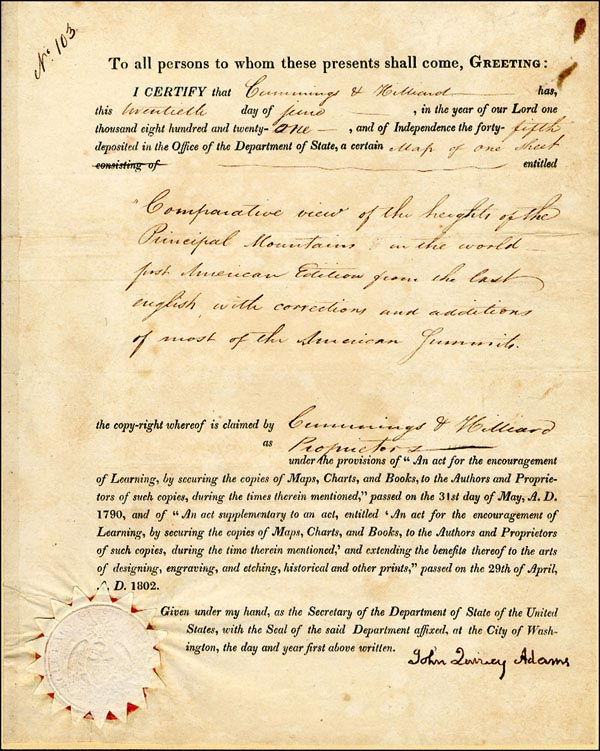 No. 103.
To all persons to whom these presents shall come, GREETING:
I CERTIFY that Cummings & Hilliard has,
this twentieth day of June, in the year of our Lord one
thousand eight hundred and twenty-one, and of Independence the forty-fifth
deposited in the Office of the Department of State, a certain Map of one Sheet
consisting of entitled
"Comparative view of the heights of the
Principal Mountains & in the world
first American Edition from the last
english, with corrections and additions
of most of the American Summits.
the copy-right whereof is claimed by Cummings & Hilliard
as Proprietors
under the provisions of "An act for the encouragement
of Learning, by securing the copies of Maps, Charts, and Books, to the Authors and Proprie-
tors of such copies, during the times therein mentioned," passed on the 31st day of May, A. D.
1790, and of "An act supplementary to an act, entitled 'An act for the encouragement of
Learning, by securing the copies of Maps, Charts, and Books, to the Authors and Proprietors
of such copies, during the time therein mentioned,' and extending the benefits thereof to the arts
of designing, engraving, and etching, historical and other prints," passed on the 29th of April,
A. D. 1802.
Given under my hand, as the Secretary of the Department of State of the United
States, with the Seal of the said Department affixed, at the City of Wash-
ington, the day and year first above written.
John Quincy Adams